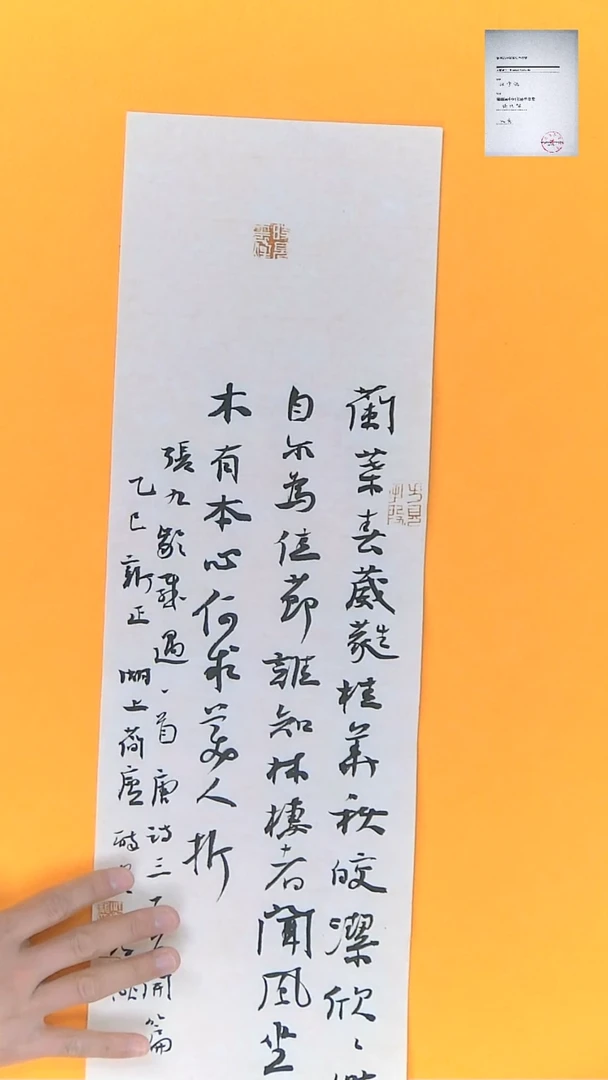 蘭葉春葳蕤桂華秋皎潔欣〻
自尔為佳節誰知林棲者聞風坐
木有本心何求美人折
張九齡感遇一首唐詩三百首開篇
乙巳新正湖上荷廬